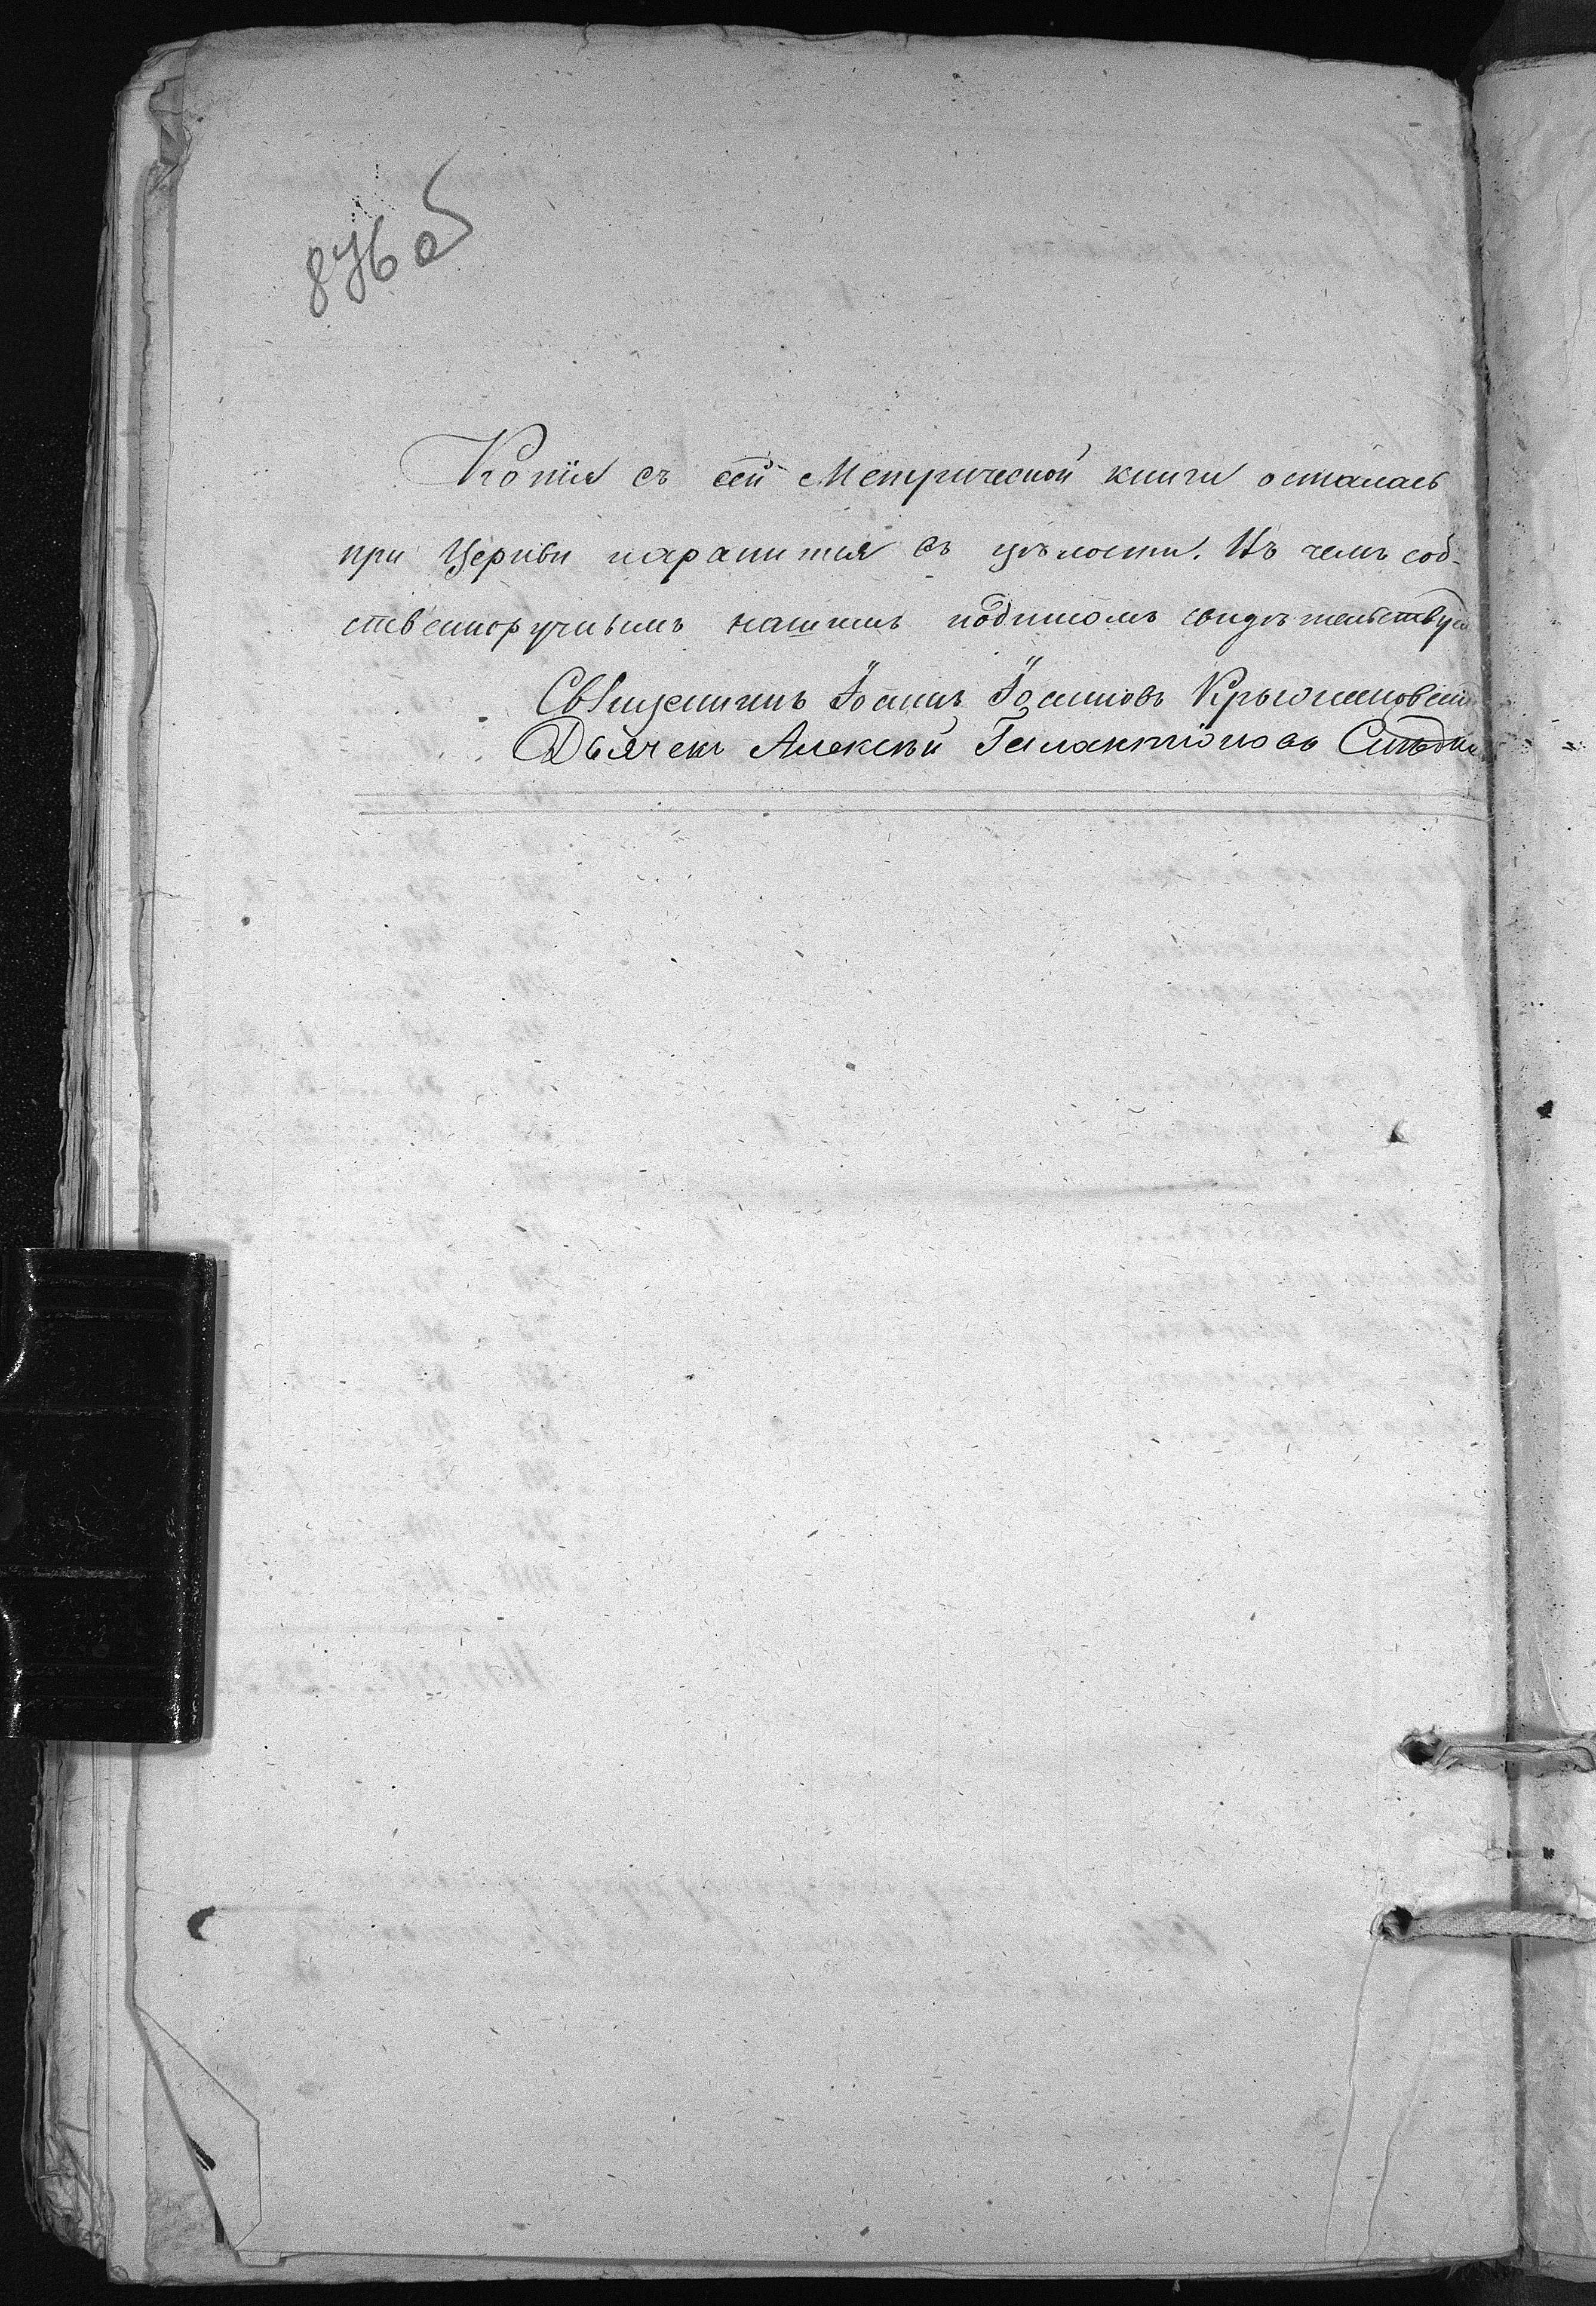 876 об
Копія съ сей Метрической книги осталась
при Церкви и хранится въ цѣлости. Въ чемъ соб-
ственноручнымъ нашимъ подписомъ свидѣтельствуем
Священникъ Іоаннъ Іоанновъ
Дьячекъ Алексѣй Галактіоновъ